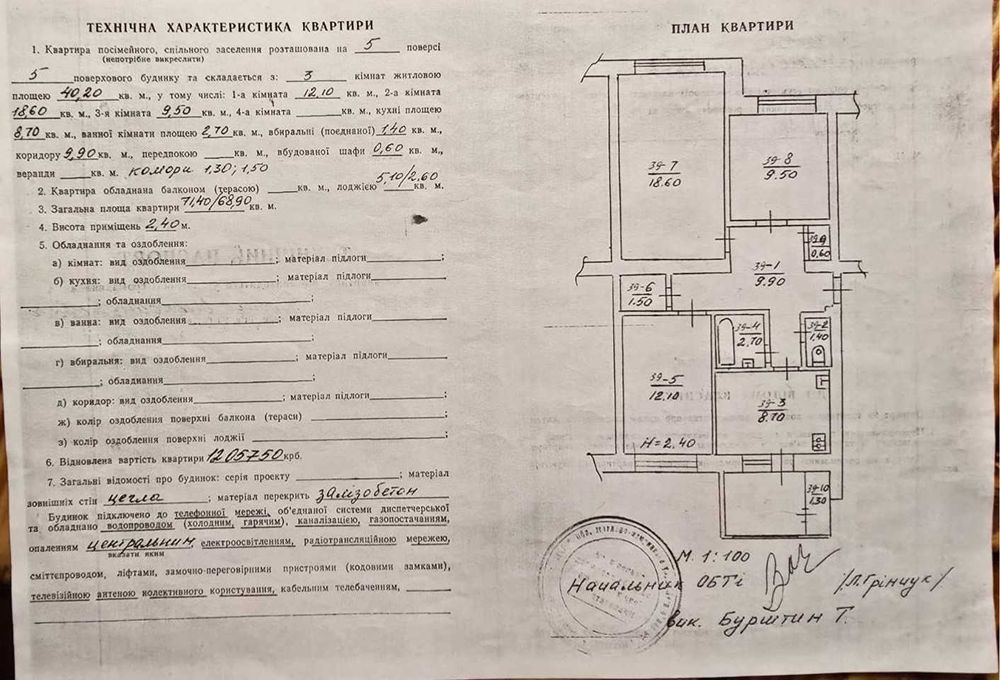 ТЕХНІЧНА ХАРАКТЕРИСТИКА КВАРТИРИ
1. Квартира посімейного, спільного заселення розташована на 5 поверсі
(непотрібне викреслити)
5 поверхового будинку та складається з: 3 кімнат житловою
площею 40,20 кв. м., у тому числі: 1-а кімната 12.10 кв. м., 2-а кімната
18,60 кв. м., 3-я кімната 9,50 кв. м., 4-а кімната кв. м., кухні площею
8,70 кв. м., ванної кімнати площею 2,70 кв. м., вбиральні (поєднаної) 1.40 кв. м.,
коридору 9,90 кв. м., передпокою кв. м., вбудованої шафи 0,60 кв. м.,
веранди кв. м. комори 1,30; 1,50
2. Квартира обладнана балконом (терасою) кв. м., лоджією 5,10/2.60 кв. м.
3. Загальна площа квартири 71,40/68,90 кв. м.
4. Висота приміщень 2,40 м.
5. Обладнання та оздоблення:
а) кімнат: вид оздоблення ; матеріал підлоги ;
б) кухня: вид оздоблення ; матеріал підлоги
; обладнання ;
в) ванна: вид оздоблення ; матеріал підлоги
; обладнання ;
г) вбиральня: вид оздоблення ; матеріал підлоги
; обладнання ;
д) коридор: вид оздоблення ; матеріал підлоги ;
ж) колір оздоблення поверхні балкона (тераси)
з) колір оздоблення поверхні лоджії ;
6. Відновлена вартість квартири 1205750 крб.
7. Загальні відомості про будинок: серія проекту ; матеріал
зовнішніх стін цегла ; матеріал перекрить залізобетон
Будинок підключено до телефонної мережі, об'єднаної системи диспетчерської
та обладнано водопроводом (холодним, гарячим), каналізацією, газопостачанням,
опаленням центральним, електроосвітленням, радіотрансляційною мережею,
вказати яким
сміттєпроводом, ліфтами, замочно-переговорними пристроями (кодовими замками),
телевізійною антеною колективного користування, кабельним телебаченням,
ПЛАН КВАРТИРИ
39-7
18.60
39-8
9.50
39-9
0,60
39-1
9.90
39-6
1.50
39-4
2,70
39-2
1,40
39-5
12.10
39-3
8.70
H=2.40
39-10
1.30
М 1:100
Начальник ОБТІ /Л.Грінчук/
вик. Бурштин Т.